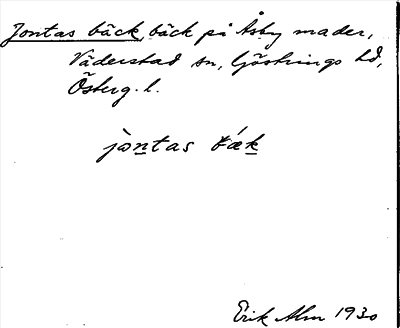 Jontas bäck, bäck på Åsby mader,
Väderstad sn, Göstrings hd,
Österg. l.
jòntas bǽk
Erik Alm 1930